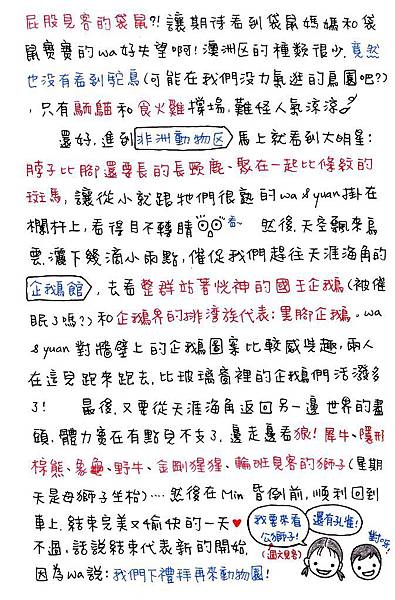 屁股見客的袋鼠?! 讓期待看到袋鼠媽媽和袋
鼠寶寶的wa好失望啊! 澳洲区的種數很少. 竟然
也没有看到鴕鳥(可能在我們没力氣逛的鳥園吧?)
, 只有鴯鶓和食火雞撐場, 難怪人氣涼涼
還好, 進到非洲動物区 馬上就看到大明星:
脖子比腳還要長的長頸鹿、聚在一起比條紋的
斑馬, 讓從小就跟牠們很熟的wa&yuan掛在
欄杆上, 看得目不轉睛 看~ 然後, 天空飄來烏
雲, 灑下幾滴小雨點, 催促我們趕往天涯海角的
企鵝館, 去看整群站著恍神的國王企鵝(被催
眠了嗎?)和企鵝界的排灣族代表:黑腳企鵝. wa
&yuan對牆壁上的企鵝圖案比較感興趣, 兩人
在這兒跑來跑去, 比玻璃窗裡的企鵝們活潑多
了! 最後, 又要從天涯海角返回另一邊世界的盡
頭, 體力實在有點兒不支了, 邊走邊看狼! 犀牛、隱形
棕熊、象龜、野牛、金剛猩猩、輪班見客的獅子(星期
天是母獅子坐枱)…. 然後在Min昏倒前, 順利回到
車上, 結束完美又愉快的一天♥
不過, 話說結束代表新的開始,
因為wa說: 我們下禮拜再來動物園!
我要來看
公獅子!
(週六見客)
還有孔雀!
對呀!